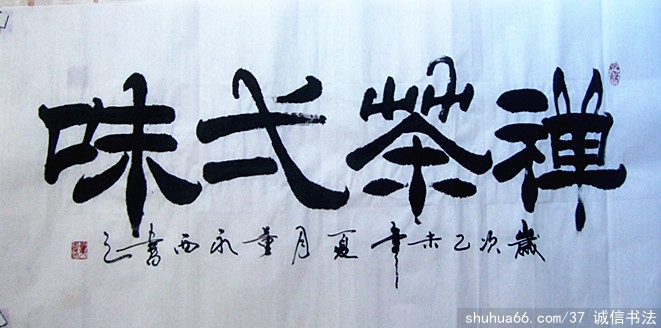 禅茶弌味
歲次乙未年夏月董永西書之
shuhua66.com/37 诚信书法